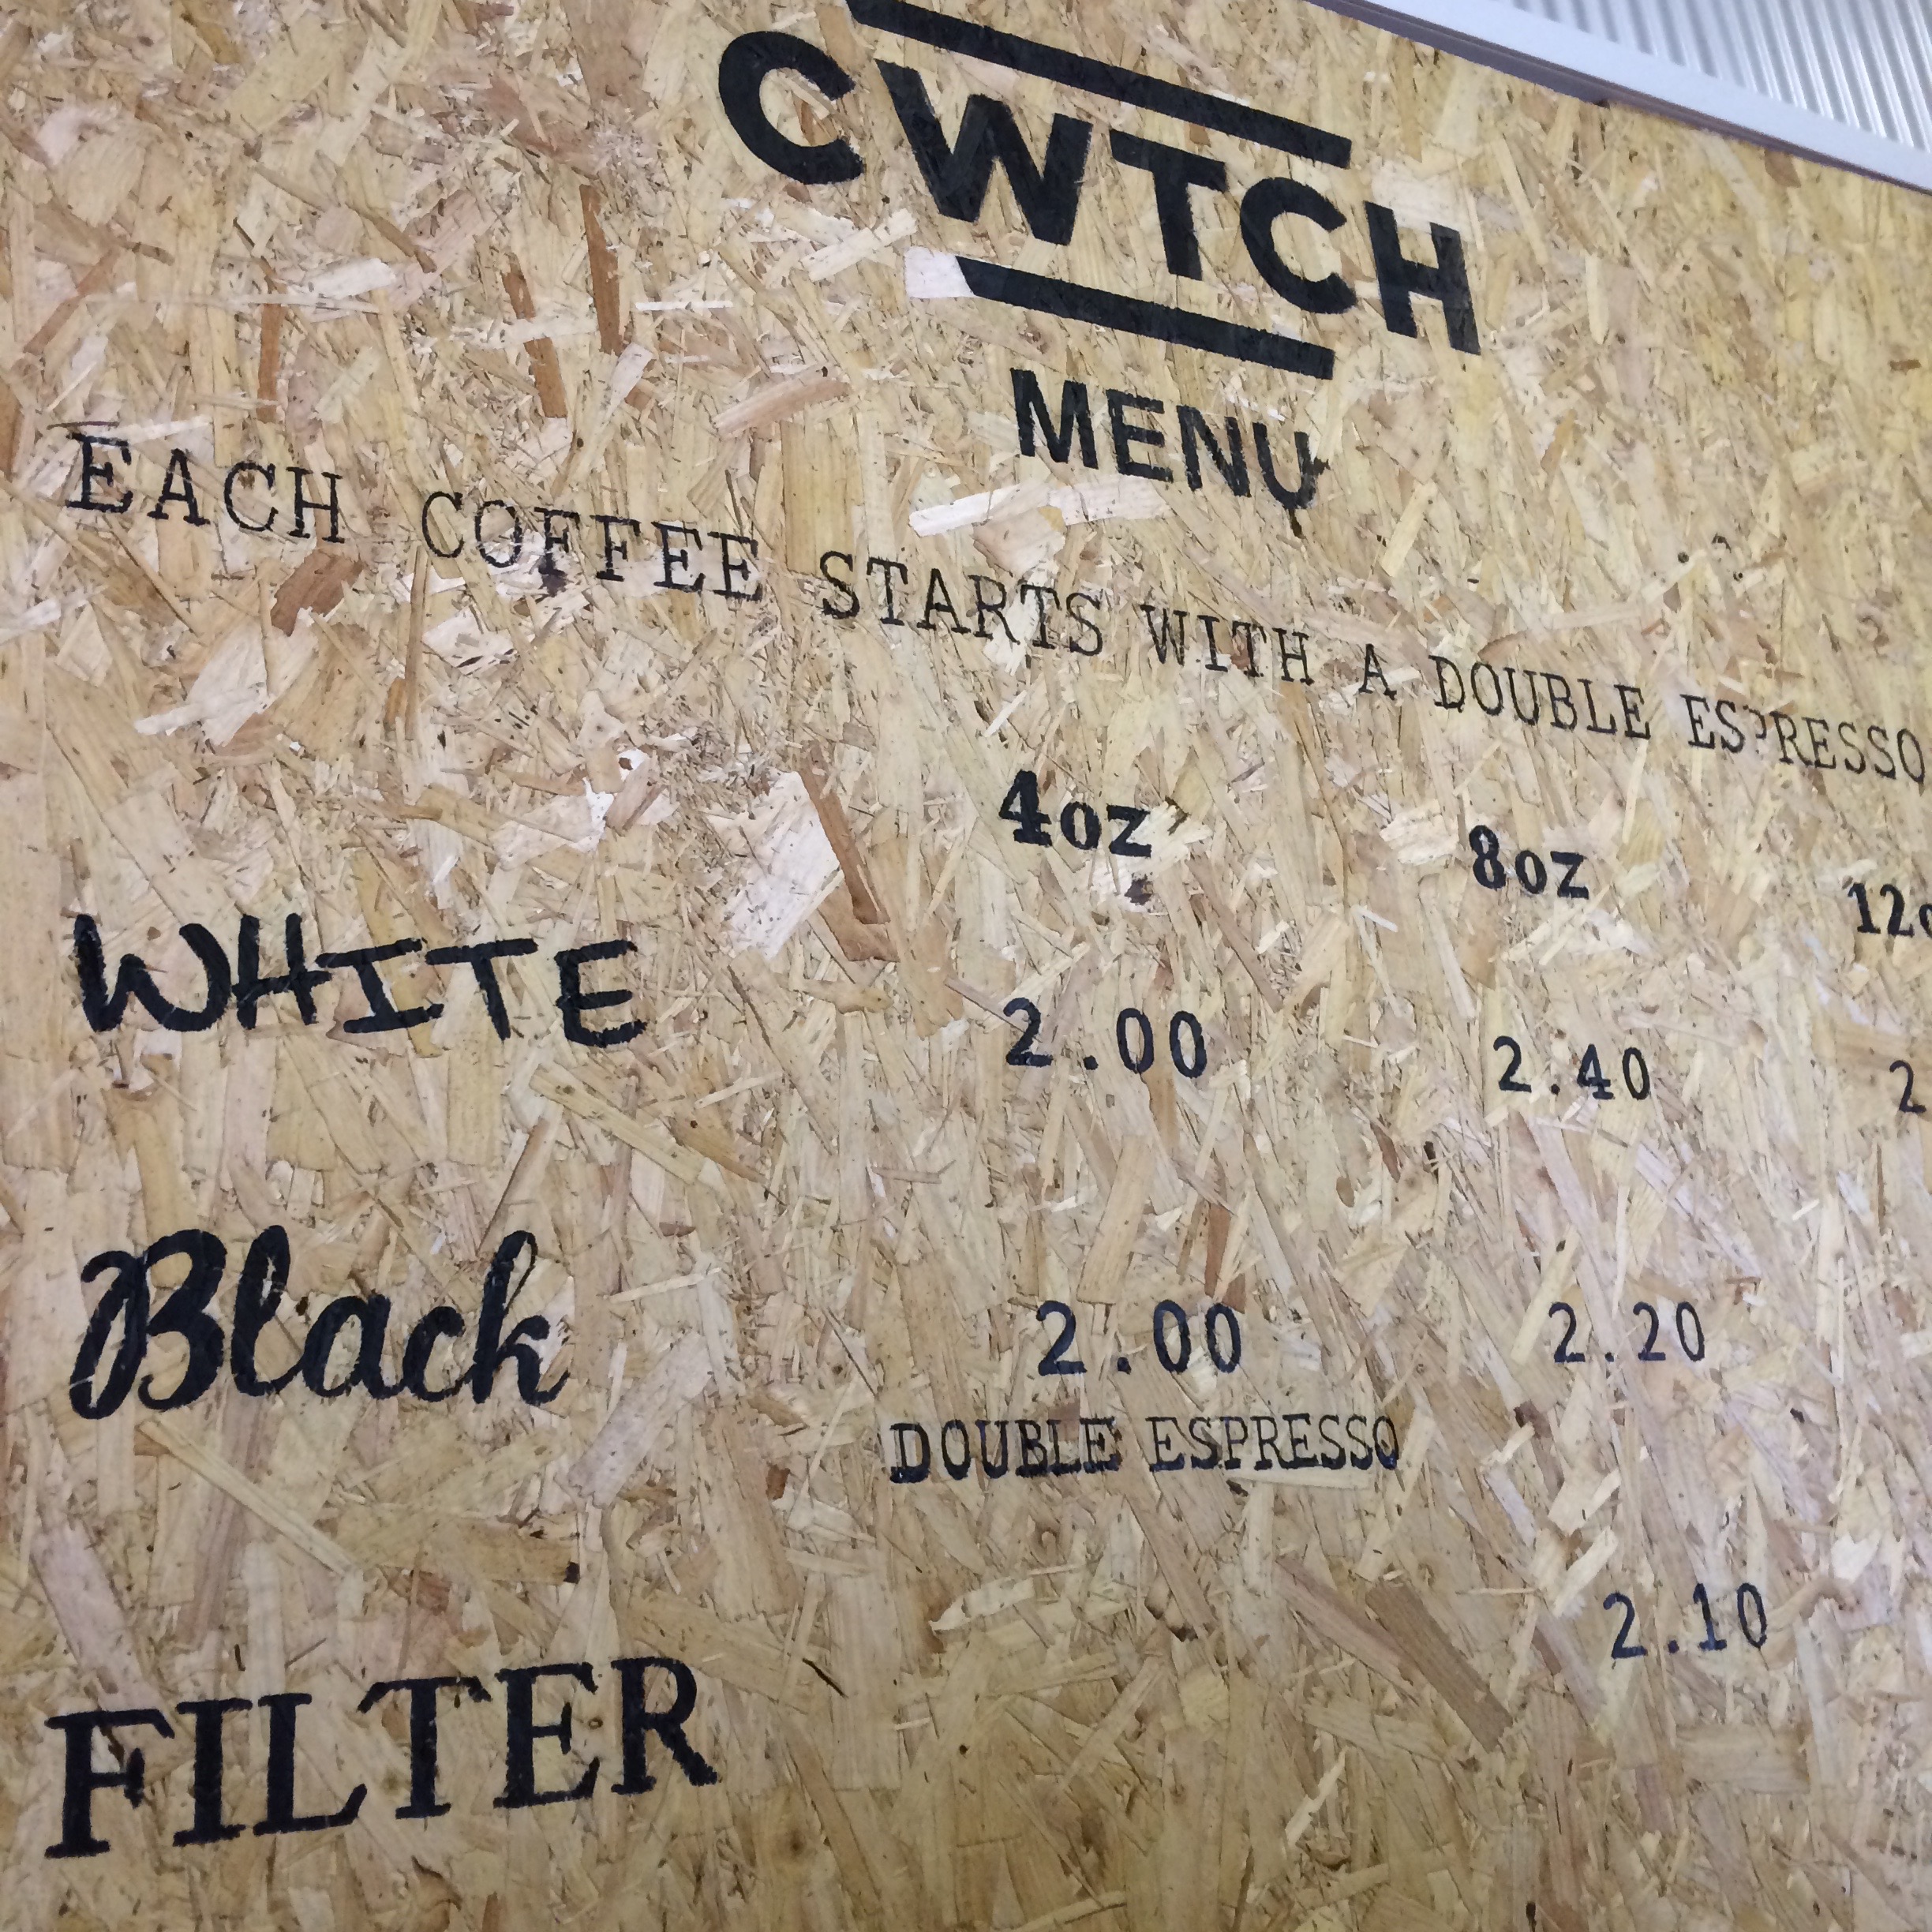 CWTCH
MENU
EACH COFFEE STARTS WITH A DOUBLE ESPRESSO
4oz 8oz
WHITE 2.00 2.40
Black 2.00 2.20
DOUBLE ESPRESSO
FILTER 2.10